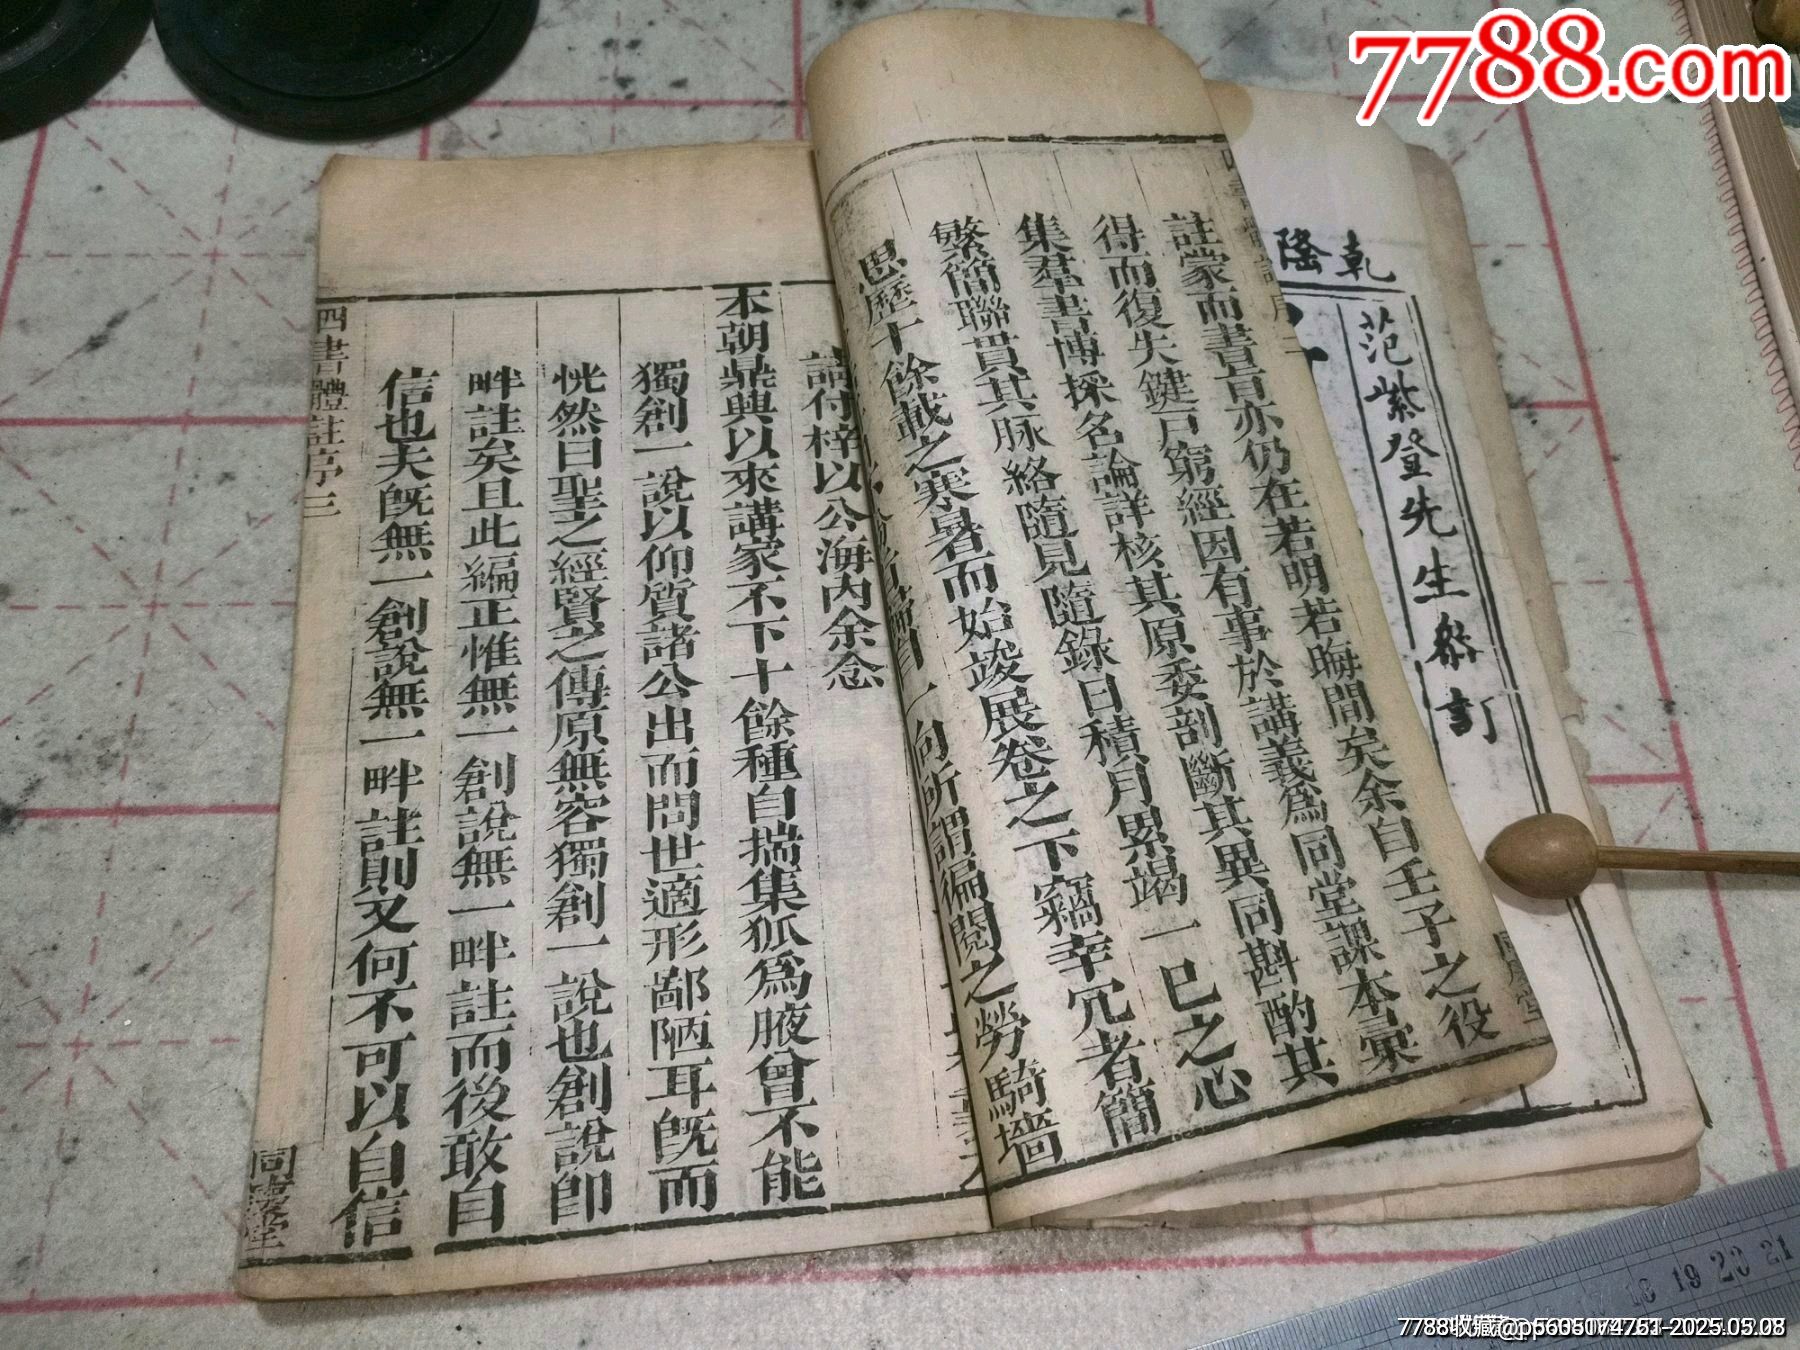 7788.com
乾隆
范紫登先生叅訂
註蒙而晝盲亦仍在若明若晦間矣余自壬子之役
得而復失鍵戸窮經因有事於講義爲同堂課本彙
集羣書博採名論詳核其原委剖斷其異同斟酌其
繁簡聯貫其脉絡隨見隨錄日積月累竭一已之心
思歷十餘載之寒暑而始竣展卷之下竊幸冗者簡
一向所謂徧閱之勞騎墻
請付梓以公海内余念
本朝鼎興以來講家不下十餘種自揣集狐爲腋曾不能
獨創一說以仰質諸公出而問世適形鄙陋耳旣而
恍然曰聖之經賢之傳原無容獨創一說也創說卽
畔註矣且此編正惟無一創說無一畔註而後敢自
信也夫旣無一創說無一畔註則又何不可以自信
四書體註序三
同慶堂
18 19 20 21